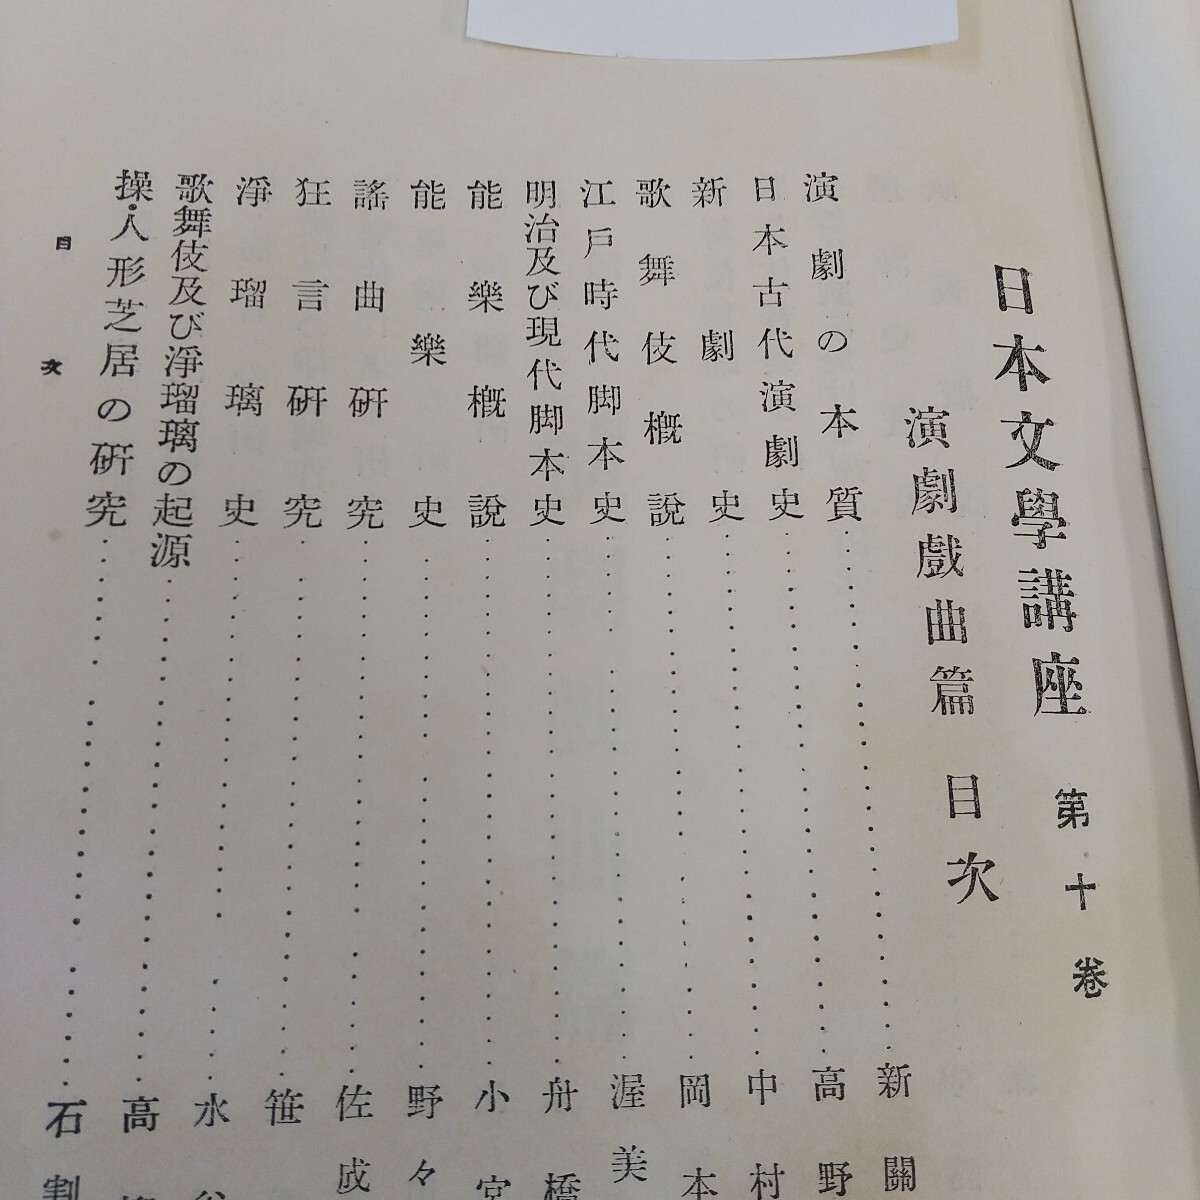 日本文學講座 第十卷
演劇戲曲篇 目次
演劇の本質 新關
日本古代演劇史 高野
新劇史 中村
歌舞伎概說 岡本
江戶時代脚本史 渥美
明治及び現代脚本史 舟橋
能樂概說 小宮
能樂史 野々
謠曲硏究 佐成
狂言硏究 笹
淨瑠璃史 水谷
歌舞伎及び淨瑠璃の起源 高
操・人形芝居の硏究 石割
目次